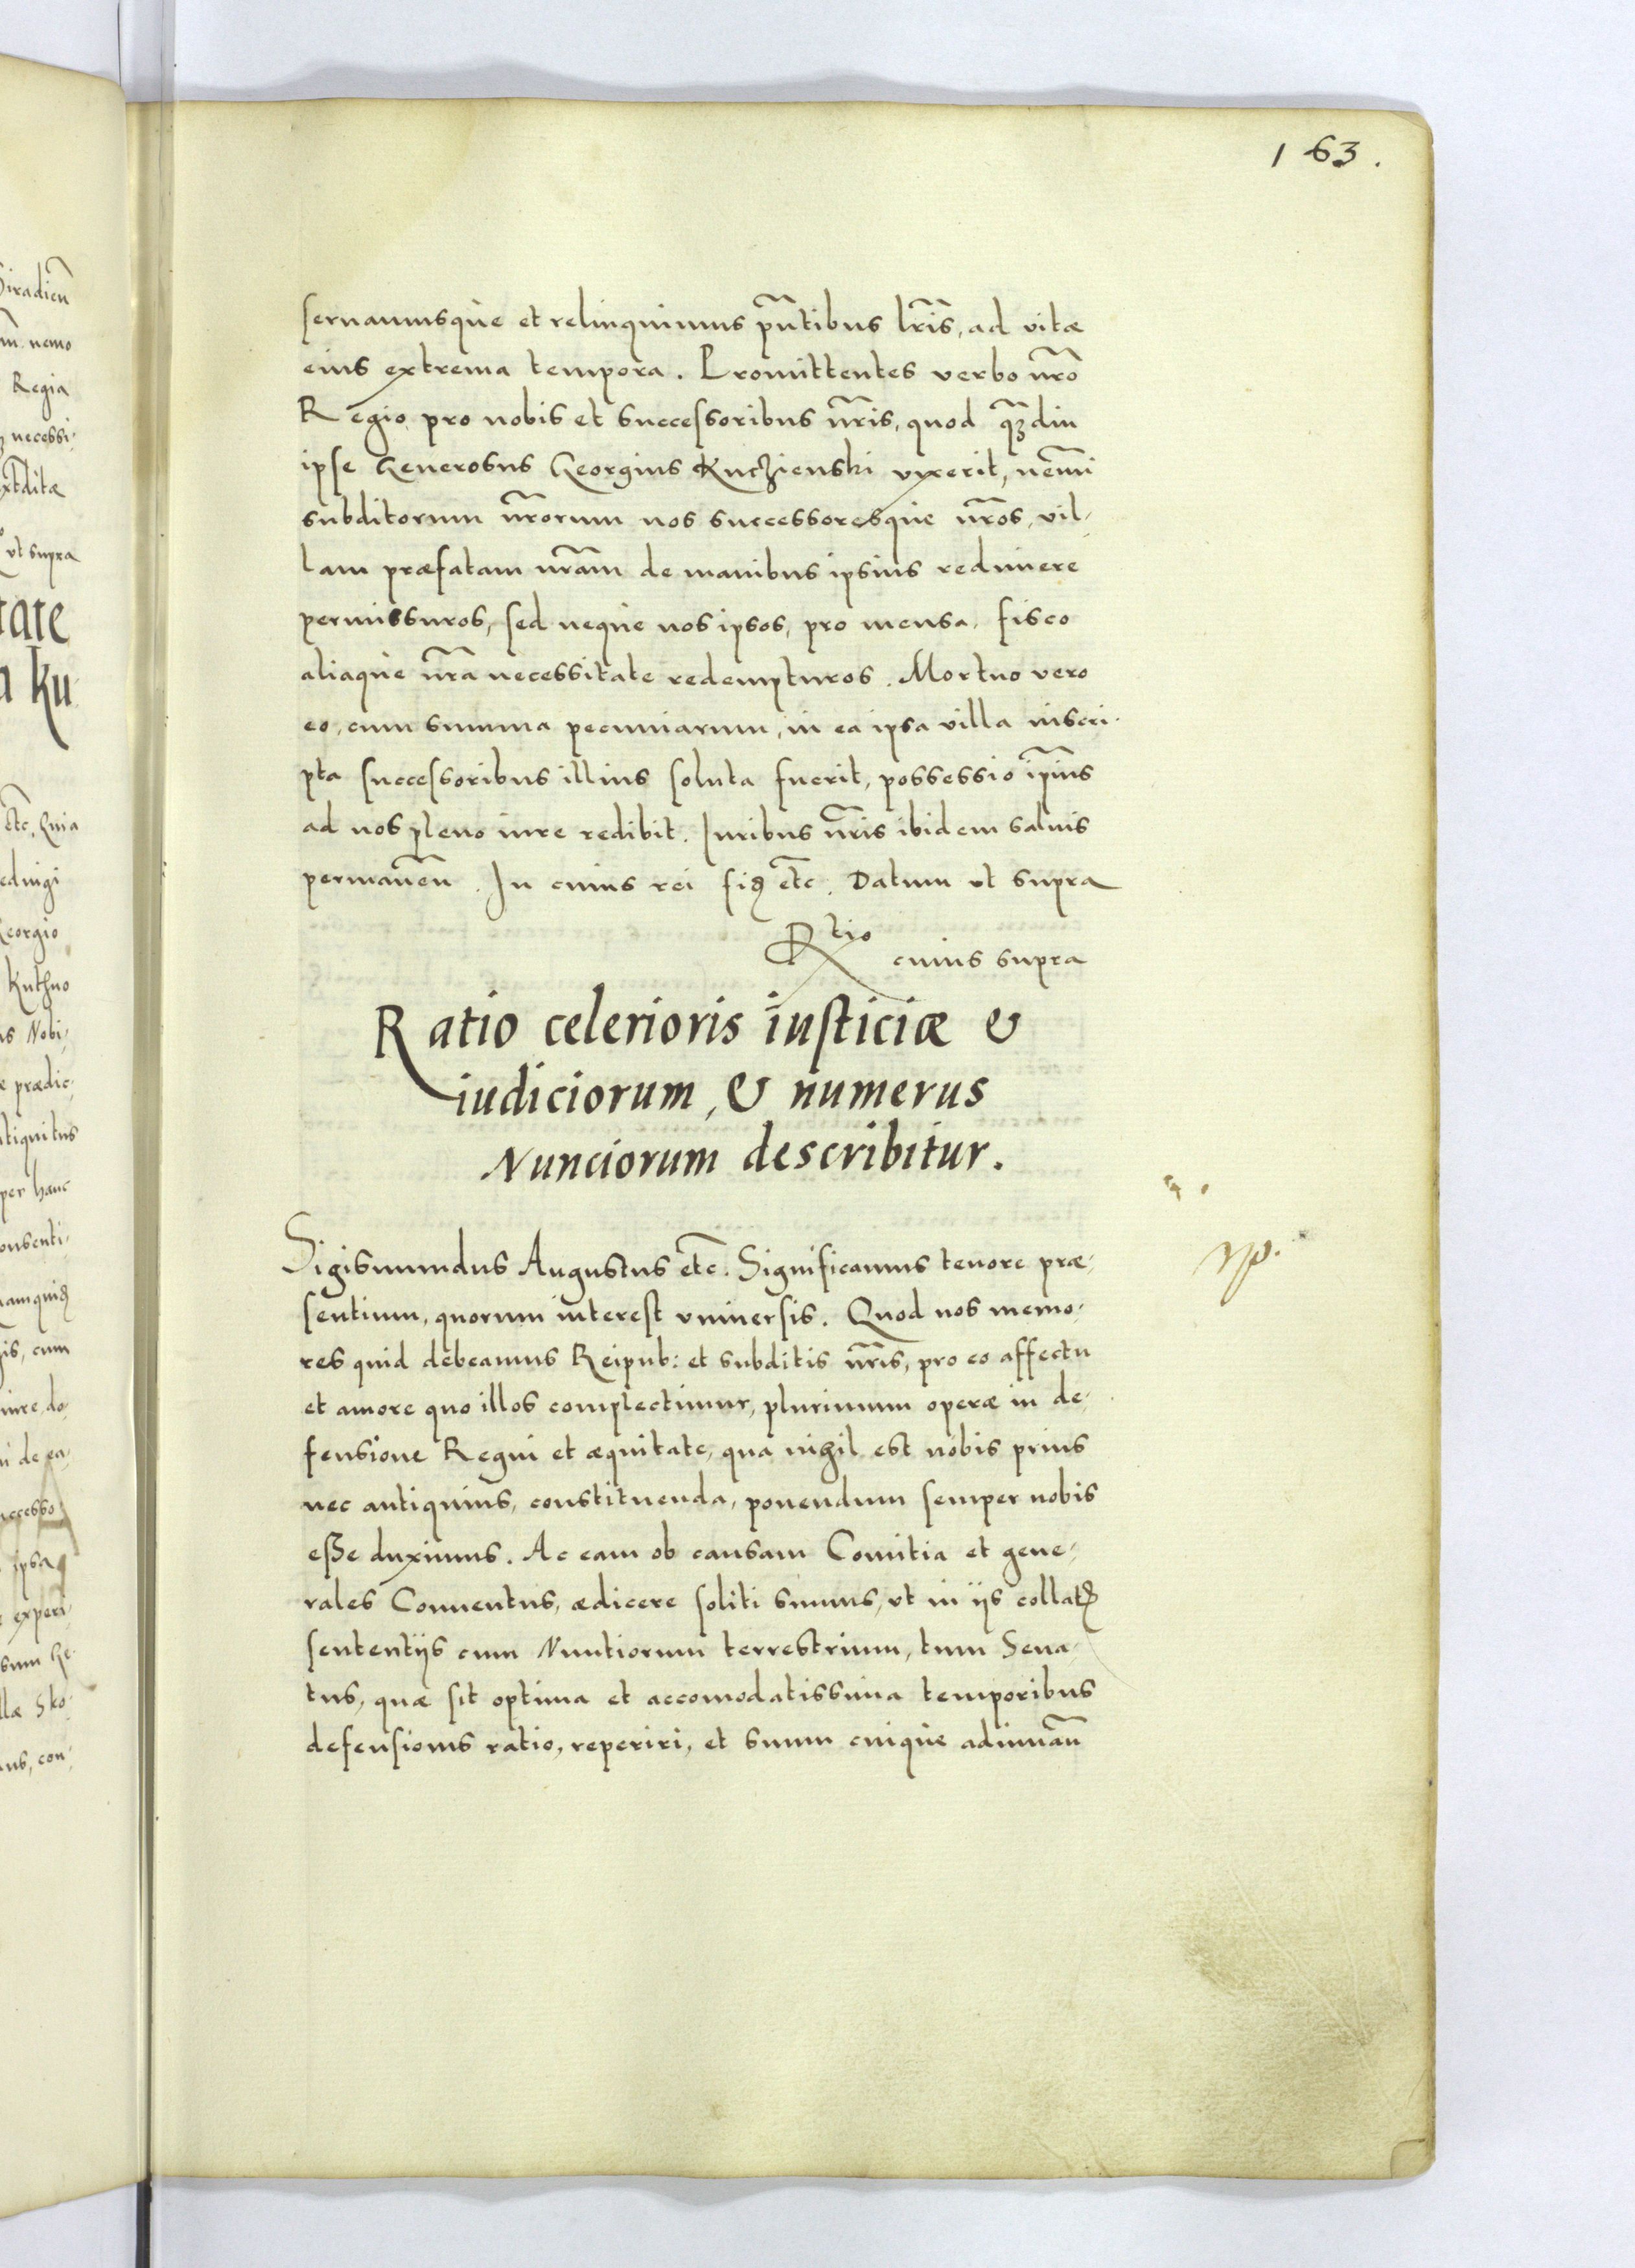 163.
seruamusque et relinquimus pñtibus lris, ad vitæ
eius extrema tempora. Promittentes verbo nro
Regio pro nobis et successoribus nris, quod qzdiu
ipse Generosus Georgius Kuczienski vixerit, nemini
subditorum nrorum nos successoresque nros, vil-
lam præfatam nram de manibus ipsius redimere
permissuros, sed neque nos ipsos, pro mensa, fisco
aliaque nra necessitate redempturos. Mortuo vero
eo, cum summa pecuniarum, in ea ipsa villa inscri-
pta successoribus illius soluta fuerit, possessio ipius
ad nos pleno iure redibit. Iuribus nris ibidem saluis
permanen. In cuius rei fig etc. Datum vt supra
Rtio cuius supra
Ratio celerioris iusticiæ &
iudiciorum, & numerus
Nunciorum describitur.
Sigismundus Augustus etc. Significamus tenore præ-
sentium, quorum interest vniuersis. Quod nos memo-
res quid debeamus Reipub: et subditis nris, pro eo affectu
et amore quo illos complectimur, plurimum operæ in de-
fensione Regni et æquitate, qua nihil est nobis prius
nec antiquius, constituenda, ponendum semper nobis
esse duximus. Ac eam ob causam Comitia et gene-
rales Conuentus, ædicere soliti sumus, vt in ijs collatis
sententijs cum Nuntiorum terrestrium, tum Sena-
tus, quæ sit optima et accomodatissima temporibus
defensionis ratio, reperiri, et suum cuique